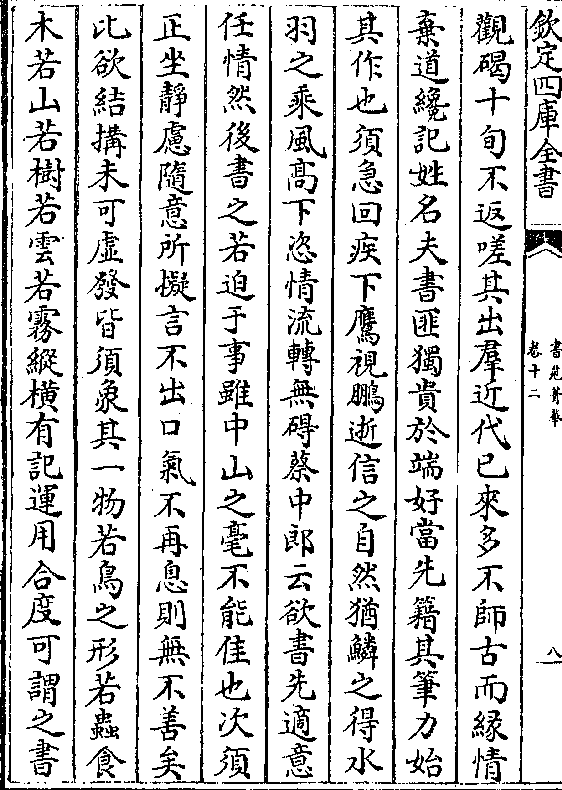 欽定四庫全書
書苑菁華
卷十二
八
觀碣十旬不返嗟其出羣近代已來多不師古而緣情
棄道纔記姓名夫書匪獨貴於端好當先籍其筆力始
其作也須急回疾下鷹視鵬逝信之自然猶鱗之得水
羽之乘風髙下恣情流轉無碍蔡中郎云欲書先適意
任情然後書之若迫于事雖中山之毫不能佳也次須
正坐靜慮隨意所擬言不出口氣不再息則無不善矣
比欲結搆未可虛發皆須象其一物若鳥之形若蟲食
木若山若樹若雲若霧縱橫有記運用合度可謂之書